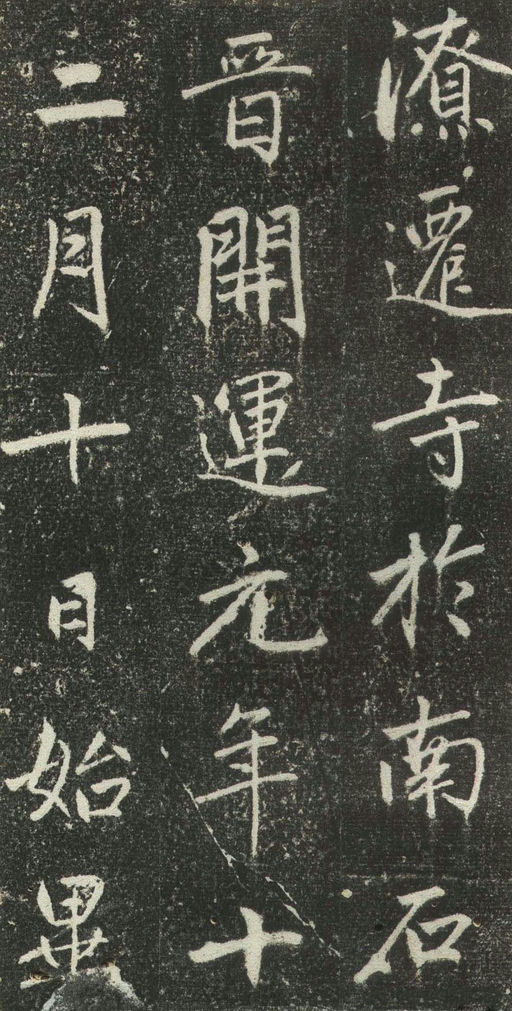 潦遷寺於南石
晋開運元年十
二月十日始畢